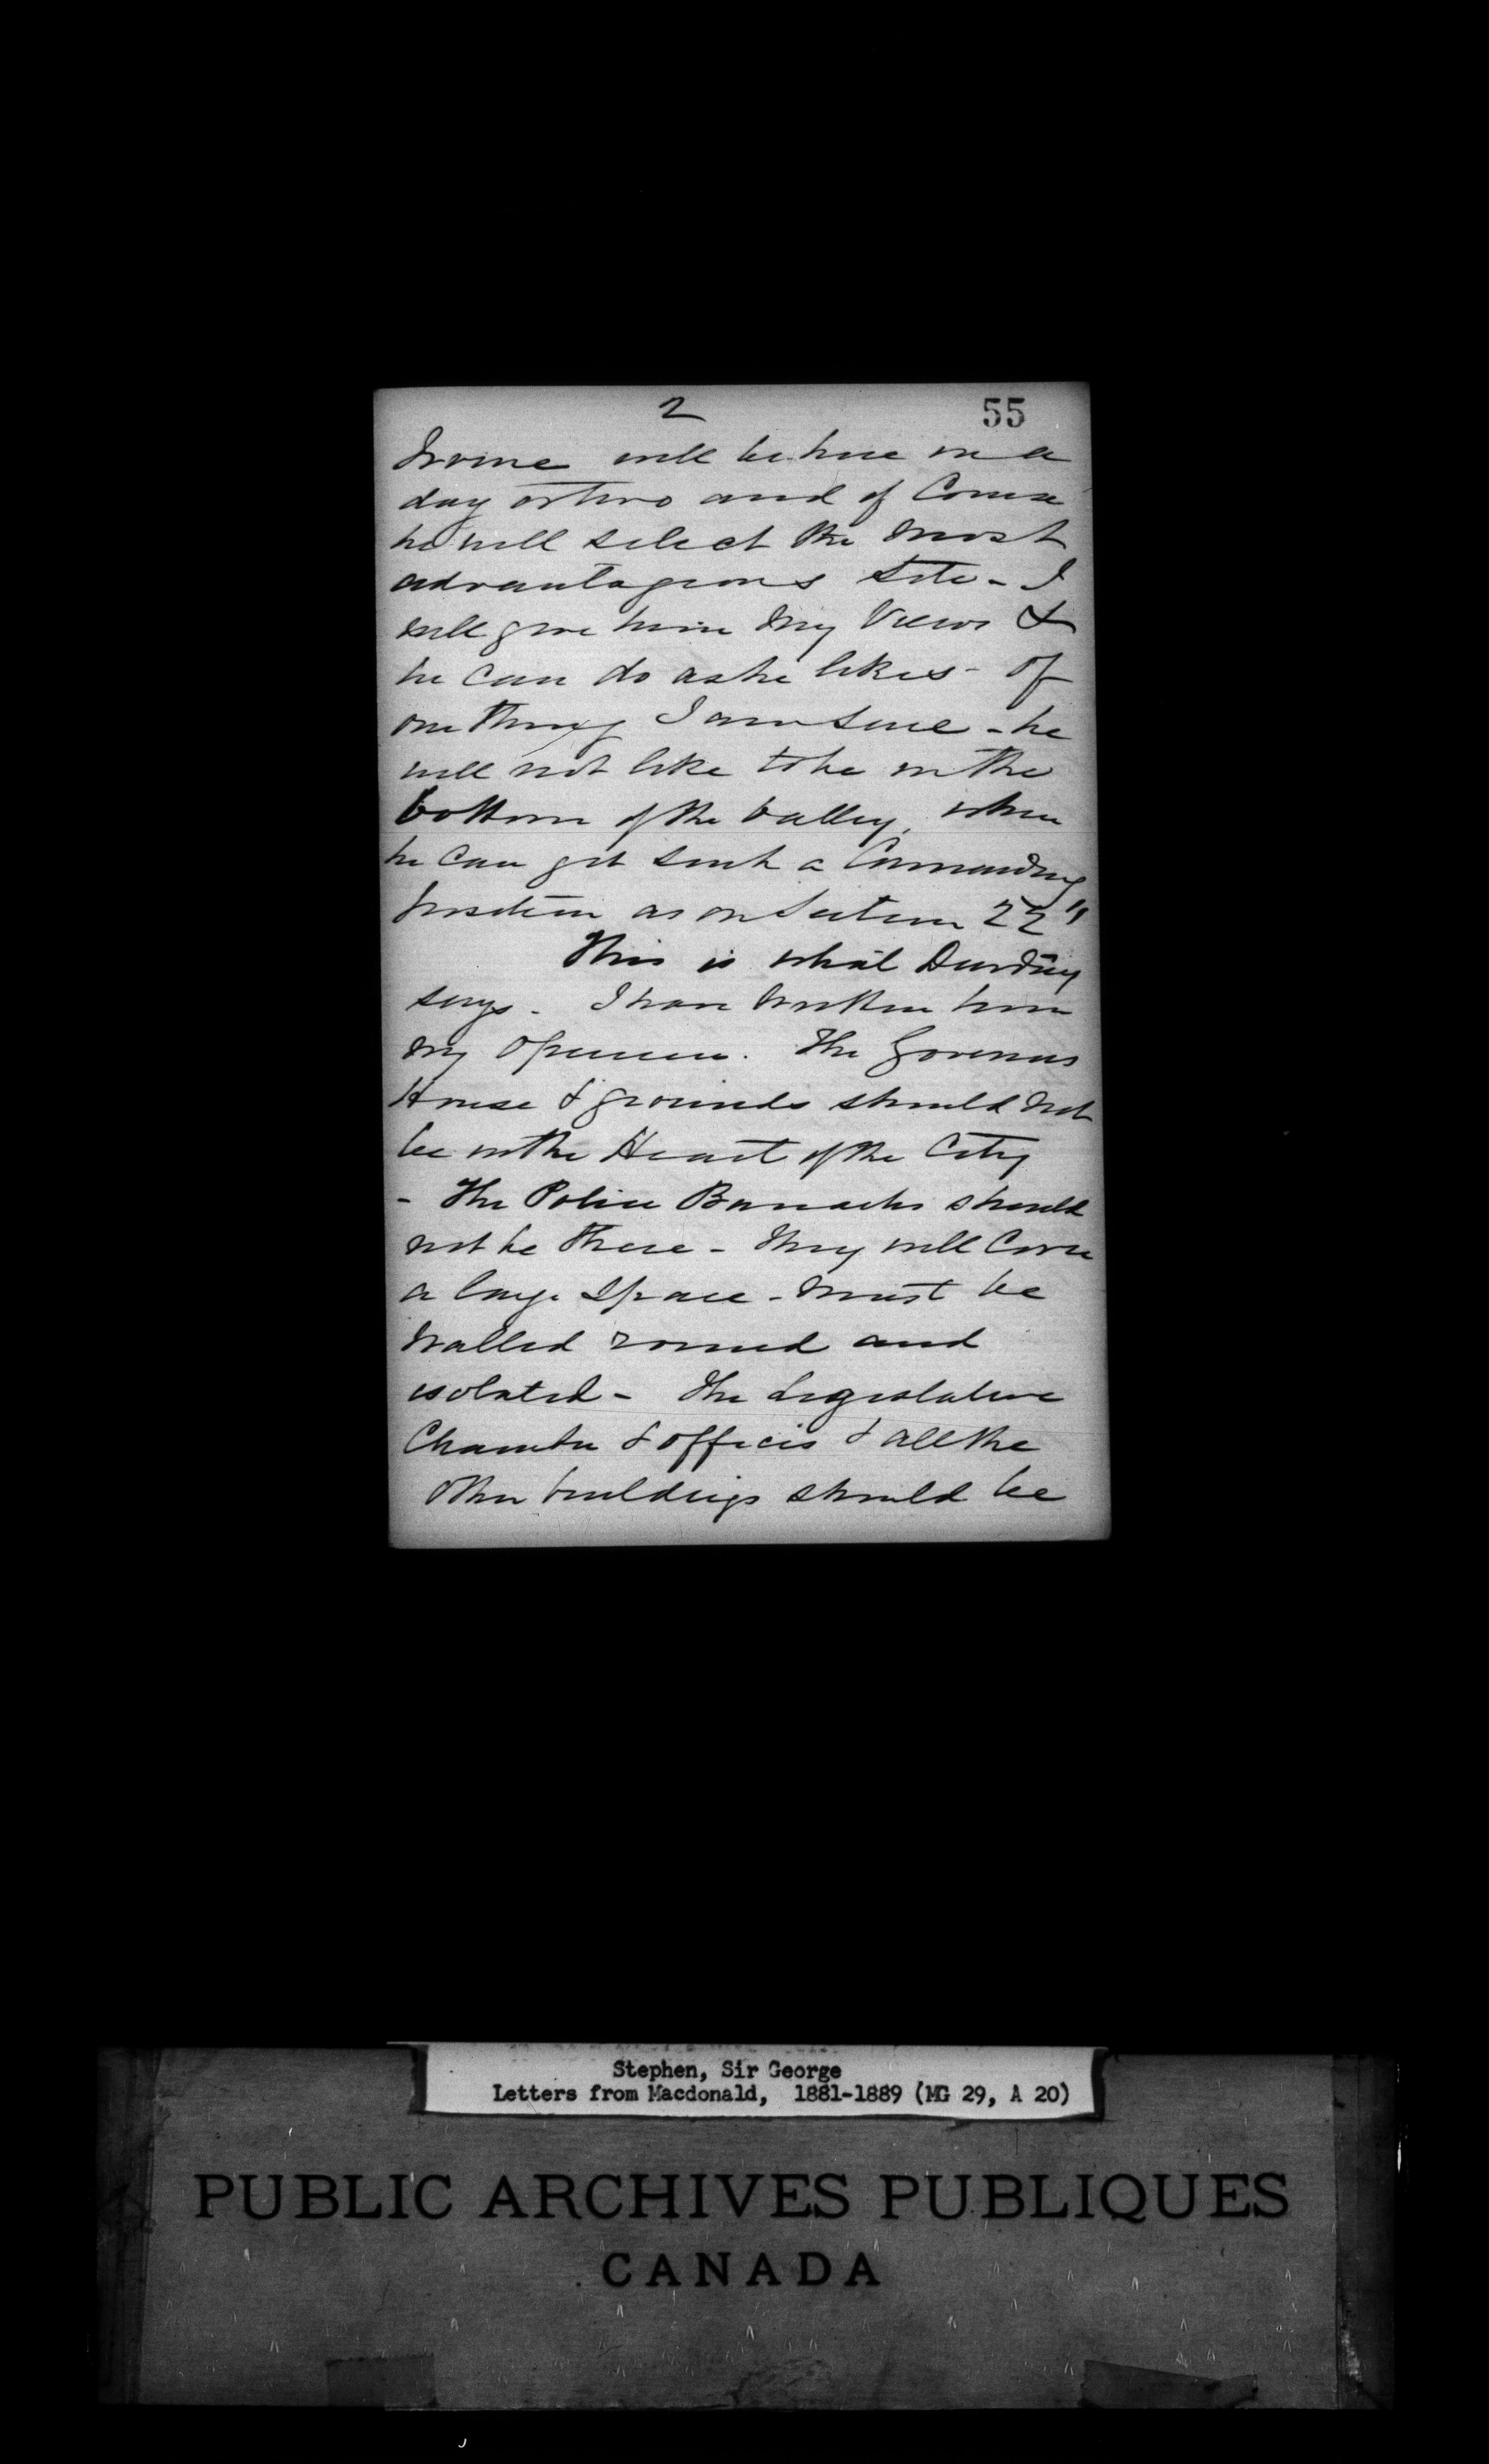 2
55
Irvine will be here in a
day or two and of Course
he will select the most
advantageous site - I
will give him my Views &
he can do as he likes - Of
one thing I am sure - he
will not like to be in the
bottom of the valley, when
he can get such a Commanding
position as on Section 22"
This is what Dewdney
says. I have written him
my opinion. The Governors
House & grounds should not
be in the Heart of the City
- The Police Barracks should
not be there - They will Cover
a large space - must be
walled round and
isolated - The Legislative
Chamber & offices & all the
other buildings should be
Stephen, Sir George
Letters from Macdonald, 1881-1889 (MG 29, A 20)
PUBLIC ARCHIVES PUBLIQUES
CANADA